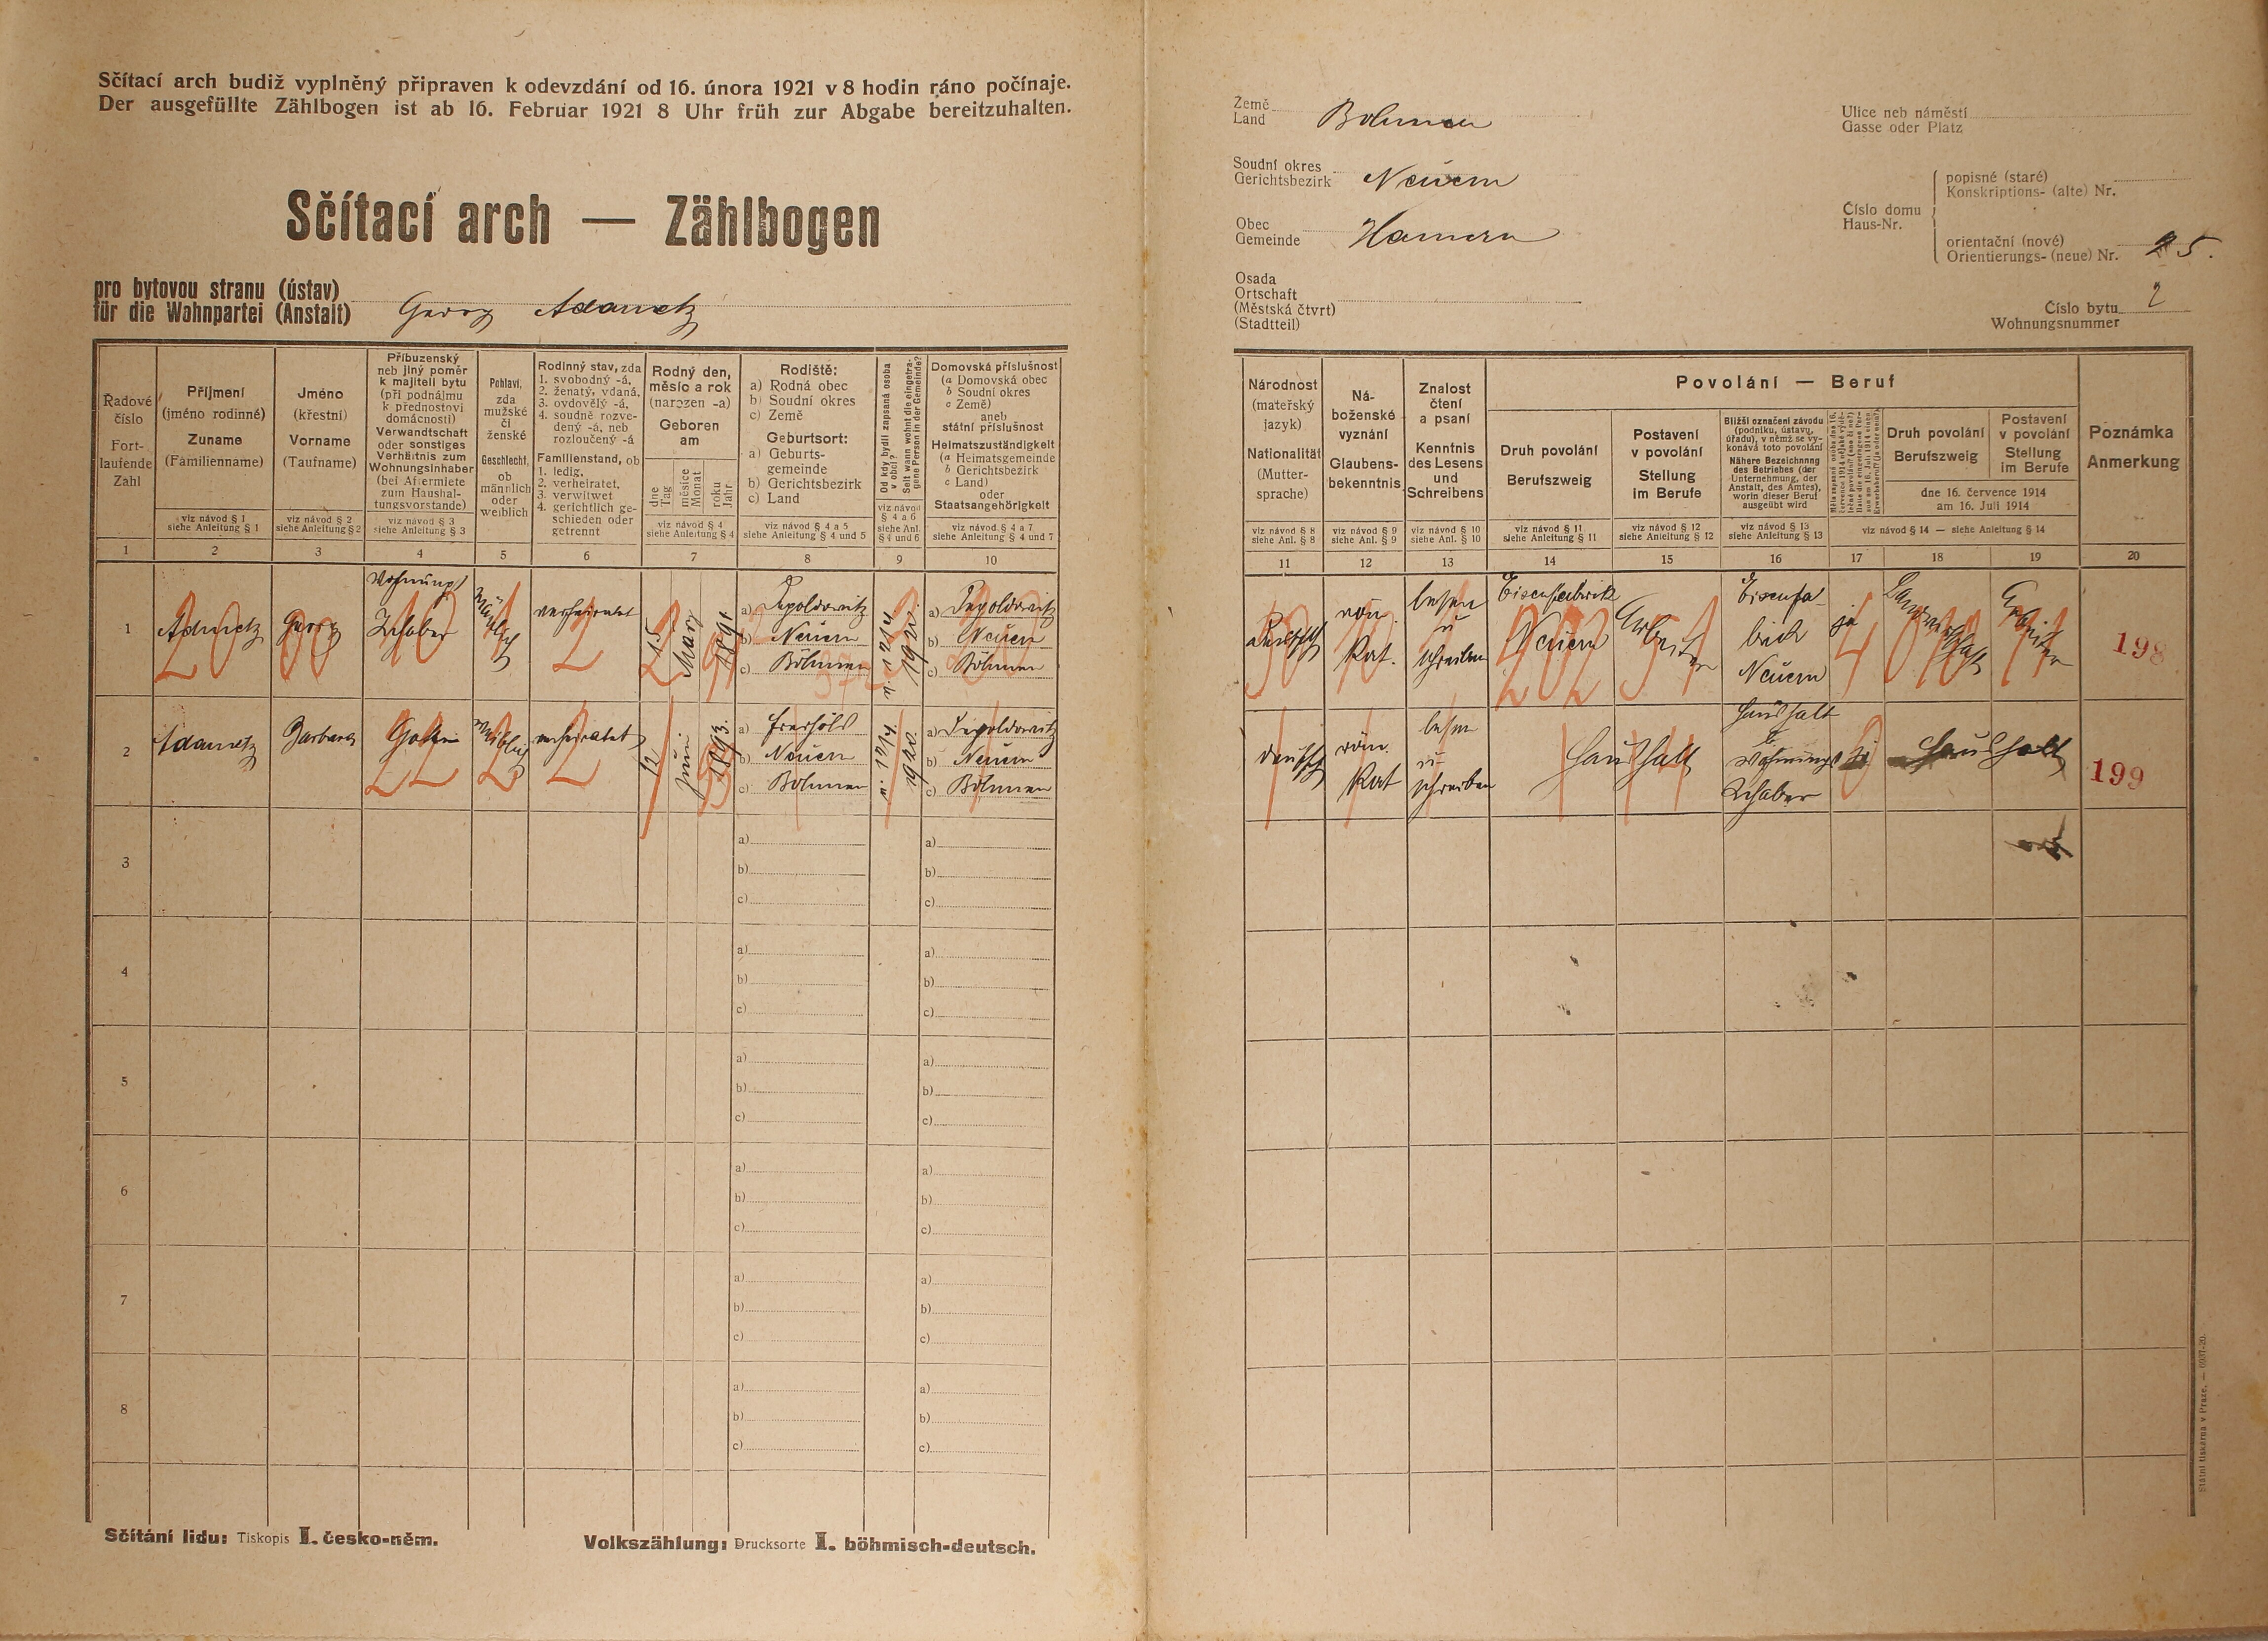 Sčítací arch budiž vyplněný připraven k odevzdání od 16. února 1921 v 8 hodin ráno počínaje.
Der ausgefüllte Zählbogen ist ab 16. Februar 1921 8 Uhr früh zur Abgabe bereitzuhalten.
Sčítací arch — Zählbogen
pro bytovou stranu (ústav)
für die Wohnpartei (Anstalt) Georg Adametz
Země
Land Böhmen
Soudní okres
Gerichtsbezirk Neuern
Obec
Gemeinde Hamern
Osada
Ortschaft
(Městská čtvrť)
(Stadtteil)
Ulice neb náměstí
Gasse oder Platz
Číslo domu
Haus-Nr.
popisné (staré)
Konskriptions- (alte) Nr.
orientační (nové)
Orientierungs- (neue) Nr. 25.
Číslo bytu 2
Wohnungsnummer
Řadové
číslo
Fort-
laufende
Zahl
1
Příjmení
(jméno rodinné)
Zuname
(Familienname)
viz návod § 1
siehe Anleitung § 1
2
Jméno
(křestní)
Vorname
(Taufname)
viz návod § 2
siehe Anleitung § 2
3
Příbuzenský
neb jiný poměr
k majiteli bytu
(při podnájmu
k přednostovi
domácnosti)
Verwandtschaft
oder sonstiges
Verhältnis zum
Wohnungsinhaber
(bei Aftermiete
zum Haushal-
tungsvorstande)
viz návod § 3
siehe Anleitung § 3
4
Pohlaví,
zda
mužské
či
ženské
Geschlecht,
ob
männlich
oder
weiblich
5
Rodinný stav, zda
1. svobodný -á,
2. ženatý, vdaná,
3. ovdovělý -á,
4. soudně rozve-
dený -á, neb
rozloučený -á
Familienstand, ob
1. ledig,
2. verheiratet,
3. verwitwet
4. gerichtlich ge-
schieden oder
getrennt
6
Rodný den,
měsíc a rok
(narozen -a)
Geboren
am
dne
Tag
měsíce
Monat
roku
Jahr
viz návod § 4
siehe Anleitung § 4
7
Rodiště:
a) Rodná obec
b) Soudní okres
c) Země
Geburtsort:
a) Geburts-
gemeinde
b) Gerichtsbezirk
c) Land
viz návod § 4 a 5
siehe Anleitung § 4 und 5
8
Od kdy bydlí zapsaná osoba
v obci?
Seit wann wohnt die eingetra-
gene Person in der Gemeinde?
viz návod
§ 4 a 6
siehe Anl.
§ 4 und 6
9
Domovská příslušnost
(a Domovská obec
b Soudní okres
c Země)
aneb
státní příslušnost
Heimatszuständigkeit
(a Heimatsgemeinde
b Gerichtsbezirk
c Land)
oder
Staatsangehörigkeit
viz návod § 4 a 7
siehe Anleitung § 4 und 7
10
Národnost
(mateřský
jazyk)
Nationalität
(Mutter-
sprache)
viz návod § 8
siehe Anl. § 8
11
Ná-
boženské
vyznání
Glaubens-
bekenntnis
viz návod § 9
siehe Anl. § 9
12
Znalost
čtení
a psaní
Kenntnis
des Lesens
und
Schreibens
viz návod § 10
siehe Anl. § 10
13
Povolání — Beruf
Druh povolání
Berufszweig
viz návod § 11
siehe Anleitung § 11
14
Postavení
v povolání
Stellung
im Berufe
viz návod § 12
siehe Anleitung § 12
15
Bližší označení závodu
(podniku, ústavu,
úřadu), v němž se vy-
konává toto povolání
Nähere Bezeichnung
des Betriebes (der
Unternehmung, der
Anstalt, des Amtes),
worin dieser Beruf
ausgeübt wird
viz návod § 13
siehe Anleitung § 13
16
17
Druh povolání
Berufszweig
Postavení
v povolání
Stellung
im Berufe
dne 16. července 1914
am 16. Juli 1914
viz návod § 14 — siehe Anleitung § 14
18
19
Poznámka
Anmerkung
20
1
Adametz
Georg
Wohnungs
Inhaber
Männlich
verheiratet
15
März
1891
a) Depoldowitz
b) Neuern
c) Böhmen
1921
a) Depoldowitz
b) Neuern
c) Böhmen
deutsch
röm.
Kat.
lesen
u
schreiben
Eisenfabrik
Neuern
Arbeiter
Eisenfa-
brick
Neuern
ja
Landwirtschaft
Arbeiter
198
2
Adametz
Barbara
Gattin
Weiblich
verheiratet
12
Juni
1893.
a)
b) Neuern
c) Böhmen
1920.
a) Depoldowitz
b) Neuern
c) Böhmen
deutsch
röm.
Kat
lesen
u
schreiben
Haushalt
Haushalt
b.
Wohnungs
Inhaber
Haushalt
199
3
a)
b)
c)
a)
b)
c)
4
a)
b)
c)
a)
b)
c)
5
a)
b)
c)
a)
b)
c)
6
a)
b)
c)
a)
b)
c)
7
a)
b)
c)
a)
b)
c)
8
a)
b)
c)
a)
b)
c)
Sčítání lidu: Tiskopis I. česko-něm.
Volkszählung: Drucksorte I. böhmisch-deutsch.
Státní tiskárna v Praze. — 6937-20.